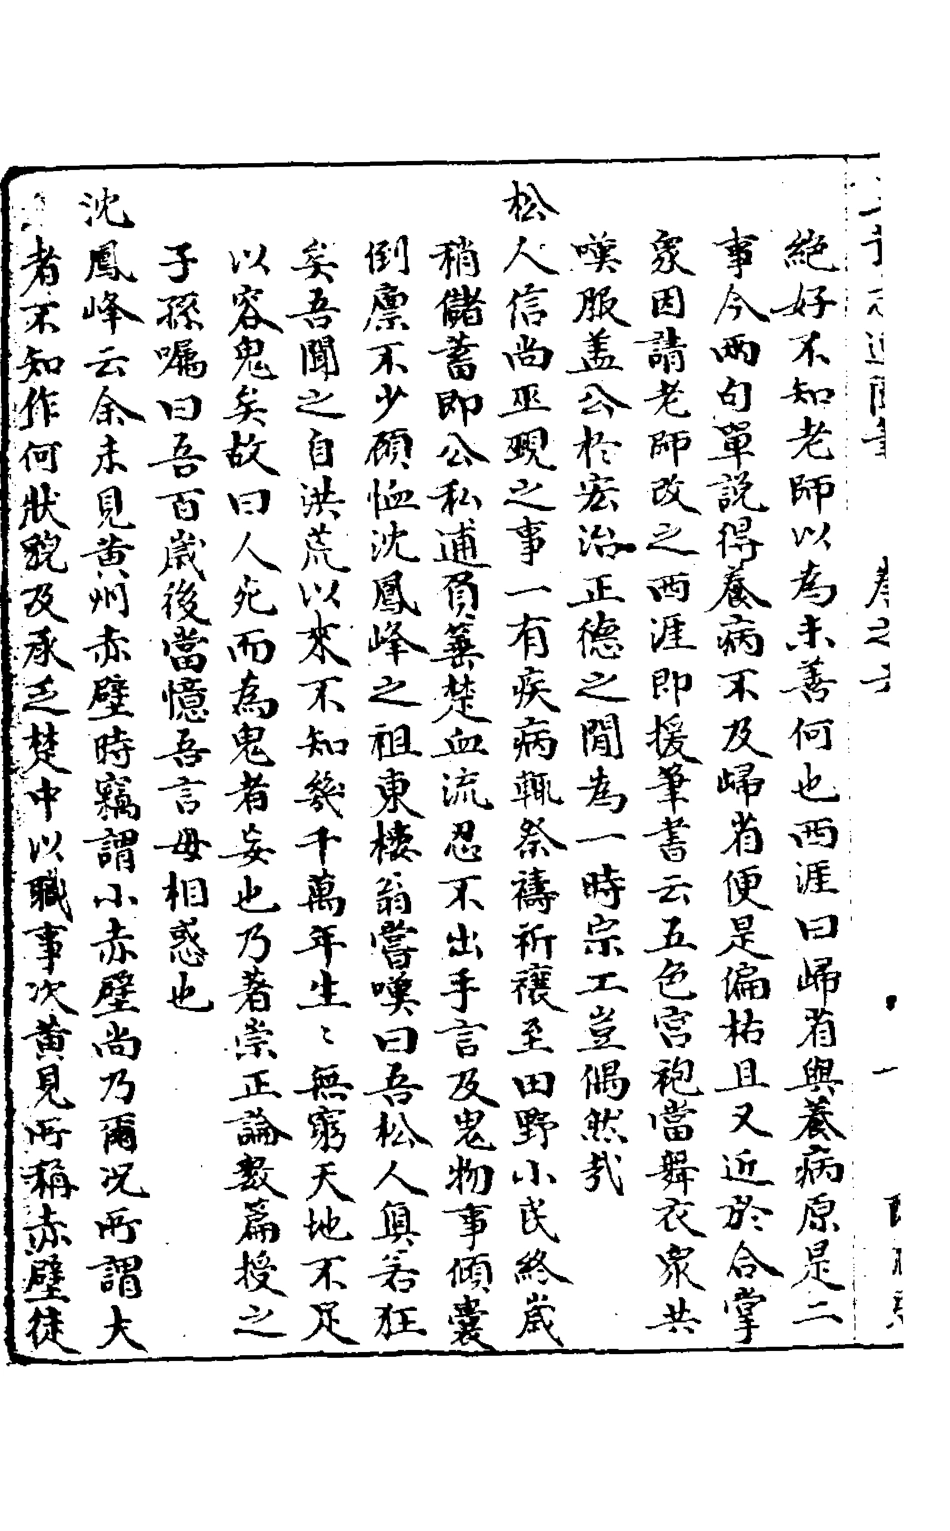 絶好不知老師以為未善何也西涯曰歸省與養病原是二
事今兩句單說得養病不及歸省便是偏枯且又近於合掌
衆因請老師改之西涯即援筆書云五色宮袍當舞衣衆共
嘆服盖公於宏治正德之間為一時宗工豈偶然哉
松人信尚巫覡之事一有疾病輒祭禱祈禳至田野小民終歲
稍儲蓄即公私逋負箠楚血流忍不出手言及鬼物事傾囊
倒廪不少顧恤沈鳳峰之祖東樓翁嘗嘆曰吾松人眞若狂
矣吾聞之自洪荒以來不知幾千萬年生〻無窮天地不足
以容鬼矣故曰人死而為鬼者妄也乃著崇正論數篇授之
子孫嘱曰吾百歲後當憶吾言毋相惑也
沈鳳峰云余未見黄州赤壁時竊謂小赤壁尚乃爾况所謂大
者不知作何狀貌及承乏楚中以職事次黄見所稱赤壁徒